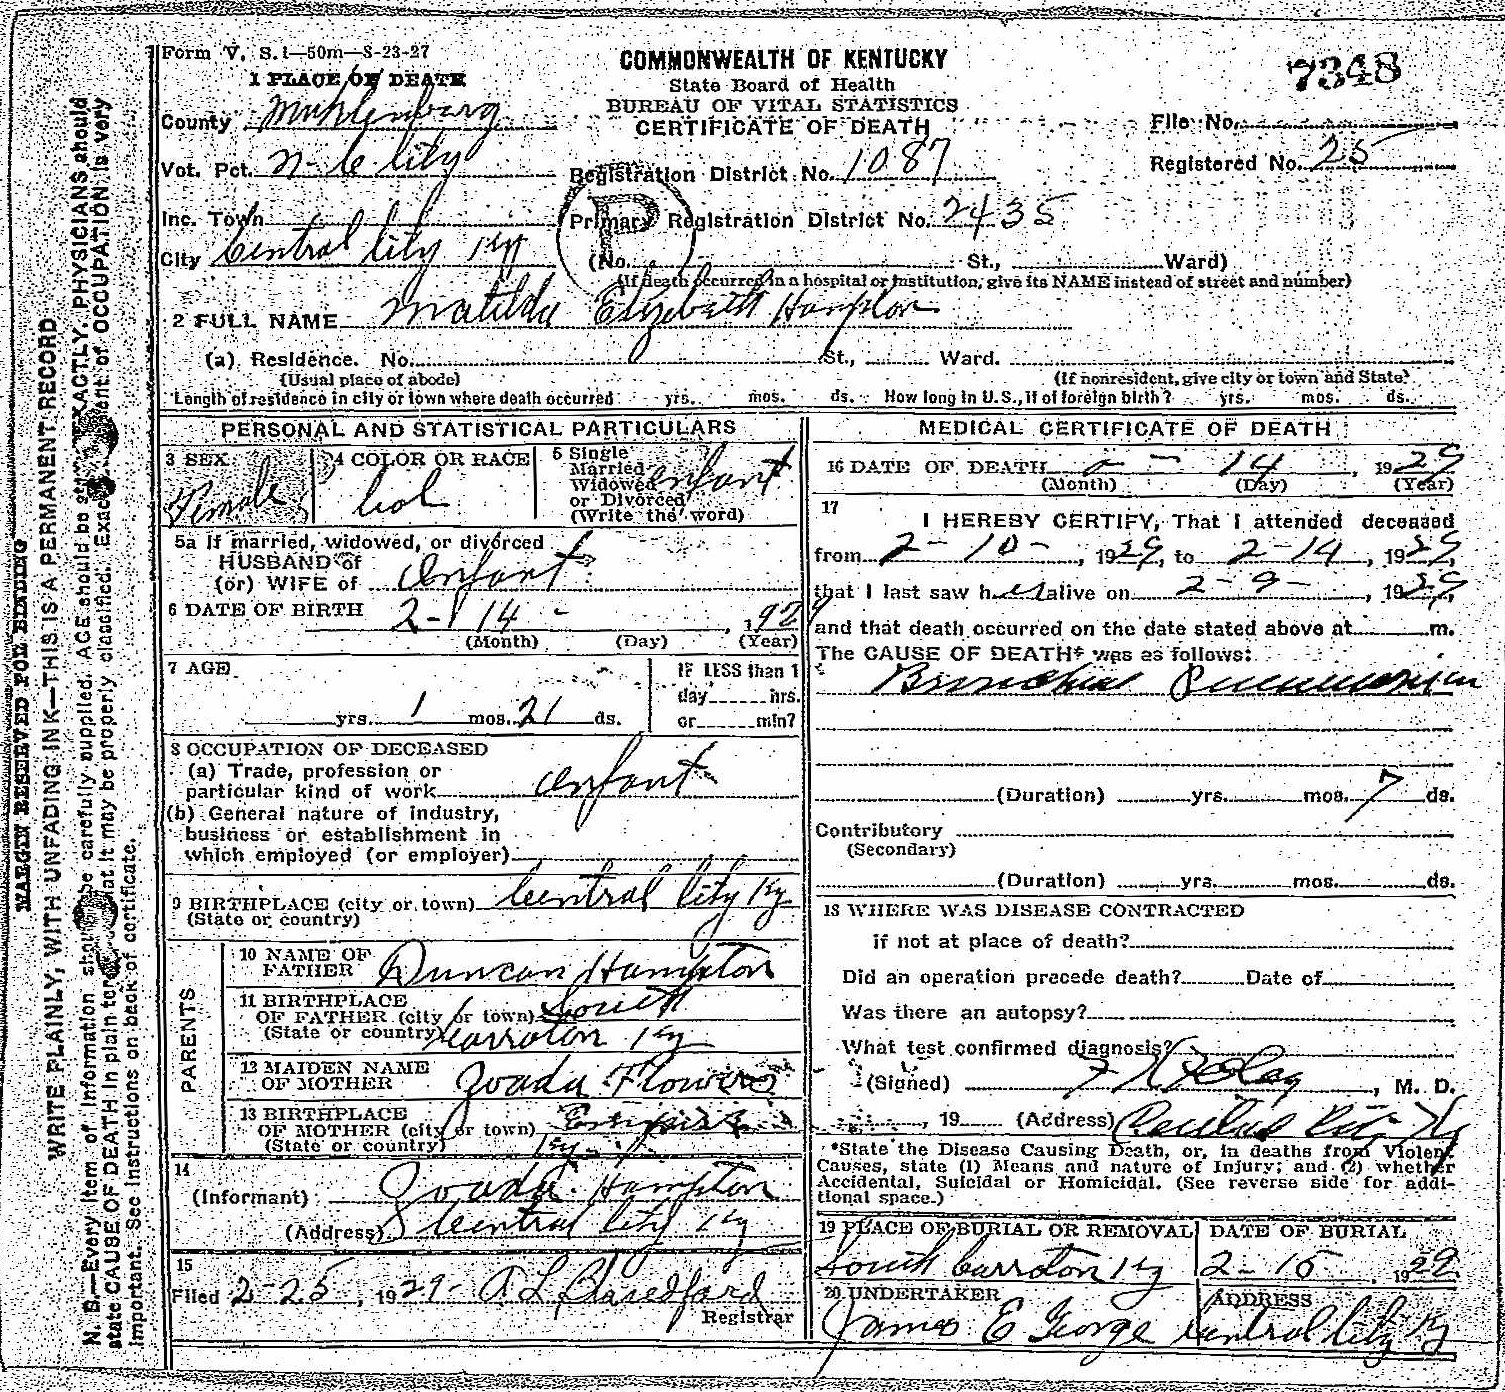 Form V. S. 1—50m—8-23-27
COMMONWEALTH OF KENTUCKY
State Board of Health
BUREAU OF VITAL STATISTICS
CERTIFICATE OF DEATH
7348
File No.
Registered No. 25
1 PLACE OF DEATH
County Muhlenburg
Vot. Pct. N- C City
Registration District No. 1087
Inc. Town
Primary Registration District No. 2435
City Central City Ky
(No. St., Ward)
(If death occurred in a hospital or institution, give its NAME instead of street and number)
2 FULL NAME Matilda Elizebeth Hampton
(a) Residence. No. St., Ward.
(Usual place of abode) (If nonresident, give city or town and State)
Length of residence in city or town where death occurred yrs. mos. ds. How long in U.S., if of foreign birth? yrs. mos. ds.
PERSONAL AND STATISTICAL PARTICULARS
3 SEX
Female
4 COLOR OR RACE
Col
5 Single
Married
Widowed
or Divorced
(Write the word)
Infant
5a If married, widowed, or divorced
HUSBAND of
(or) WIFE of Infant
6 DATE OF BIRTH 2- 14 - , 192
(Month) (Day) (Year)
7 AGE
yrs. 1 mos. 21 ds.
IF LESS than 1
day hrs.
or min?
8 OCCUPATION OF DECEASED
(a) Trade, profession or
particular kind of work Infant
(b) General nature of industry,
business or establishment in
which employed (or employer)
9 BIRTHPLACE (city or town) Central City Ky
(State or country)
PARENTS
10 NAME OF
FATHER Duncan Hampton
11 BIRTHPLACE
OF FATHER (city or town) South
(State or country) Carroton Ky
12 MAIDEN NAME
OF MOTHER Zoada Flowers
13 BIRTHPLACE
OF MOTHER (city or town) Empire
(State or country) Ky
14
(Informant) Zoada Hampton
(Address) Central City Ky
15
Filed 2-25, 1929- A L Blandford
Registrar
MEDICAL CERTIFICATE OF DEATH
16 DATE OF DEATH - 14, 1929
(Month) (Day) (Year)
17
I HEREBY CERTIFY, That I attended deceased
from 2-10-, 1929, to 2-14, 1929,
that I last saw her alive on 2-9-, 1929,
and that death occurred on the date stated above at m.
The CAUSE OF DEATH* was as follows:
Bronchial Pneumonia
(Duration) yrs. mos. 7 ds.
Contributory
(Secondary)
(Duration) yrs. mos. ds.
18 WHERE WAS DISEASE CONTRACTED
if not at place of death?
Did an operation precede death? Date of
Was there an autopsy?
What test confirmed diagnosis?
(Signed) , M. D.
, 19 (Address) Central City Ky
*State the Disease Causing Death, or, in deaths from Violent
Causes, state (1) Means and nature of Injury; and (2) whether
Accidental, Suicidal or Homicidal. (See reverse side for addi-
tional space.)
19 PLACE OF BURIAL OR REMOVAL
South Carroton Ky
DATE OF BURIAL
2-15, 1929
20 UNDERTAKER
James E George
ADDRESS
Central City Ky
MARGIN RESERVED FOR BINDING
WRITE PLAINLY, WITH UNFADING INK—THIS IS A PERMANENT RECORD
N. B.—Every item of information should be carefully supplied. AGE should be EXACTLY. PHYSICIANS should
state CAUSE OF DEATH in plain that it may be properly classified. of OCCUPATION is very
important. See instructions on back of certificate.